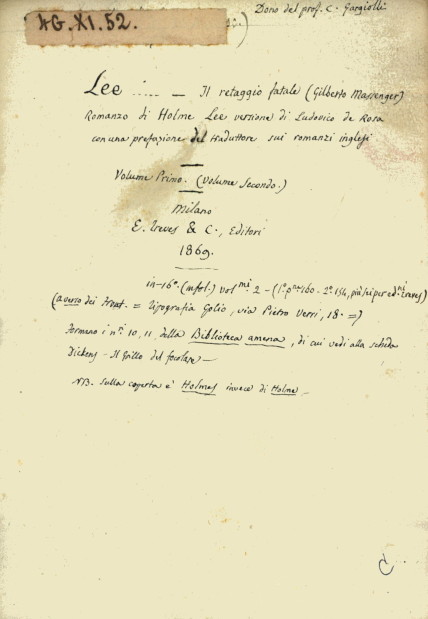 Dono del prof. C. Gargiolli
4G.XI.52.
Lee ..... — Il retaggio fatale (Gilberto Massenger)
Romanzo di Holme Lee versione di Ludovico de Rosa
con una prefazione del traduttore sui romanzi inglesi
Volume Primo. (Volume Secondo.)
Milano
E. Treves & C., Editori
1869.
in-16º. (mfol.) vol mi 2 - (1º. pne 160 - 2º. 154, più sei per edni Treves)
(a verso dei Front. = Tipografia Golio, via Pietro Verri, 18. =)
Formano i ni. 10, 11, della Biblioteca amena, di cui vedi alla scheda
Dickens - Il Grillo del focolare —
NB. Sulla coperta è Holmes invece di Holme —